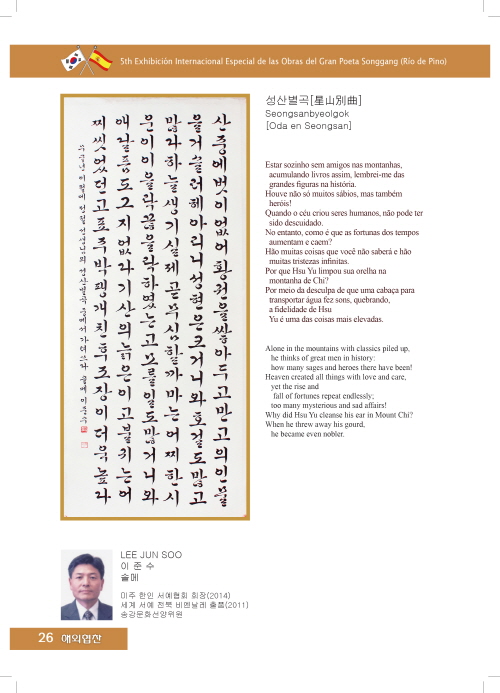 5th Exhibición Internacional Especial de las Obras del Gran Poeta Songgang (Río de Pino)
성산별곡[星山別曲]
Seongsanbyeolgok
[Oda en Seongsan]
산중에 벗이 없어 황권을 쌓아 두고 만고의 인물
을 거슬러 헤아리니 성현은 크거니와 호걸도 많고
많다 하늘 생기실제 곧 무심할까마는 어찌 한 시
운이 이을락 끊을락 하였는고 모를 일도 많거니와
애달픔도 그지 없다 기산의 늙은이 고불 귀는 어
찌 씻었던고 표주박 팽개친 후 조장이 더욱 높다
Estar sozinho sem amigos nas montanhas,
acumulando livros assim, lembrei-me das
grandes figuras na história.
Houve não só muitos sábios, mas também
heróis!
Quando o céu criou seres humanos, não pode ter
sido descuidado.
No entanto, como é que as fortunas dos tempos
aumentam e caem?
Hão muitas coisas que você não saberá e hão
muitas tristezas infinitas.
Por que Hsu Yu limpou sua orelha na
montanha de Chi?
Por meio da desculpa de que uma cabaça para
transportar água fez sons, quebrando,
a fidelidade de Hsu
Yu é uma das coisas mais elevadas.
Alone in the mountains with classics piled up,
he thinks of great men in history:
how many sages and heroes there have been!
Heaven created all things with love and care,
yet the rise and
fall of fortunes repeat endlessly;
too many mysterious and sad affairs!
Why did Hsu Yu cleanse his ear in Mount Chi?
When he threw away his gourd,
he became even nobler.
LEE JUN SOO
이 준 수
솔메
미주 한인 서예협회 회장(2014)
세계 서예 전북 비엔날레 출품(2011)
송강문화선양위원
26 해외협찬